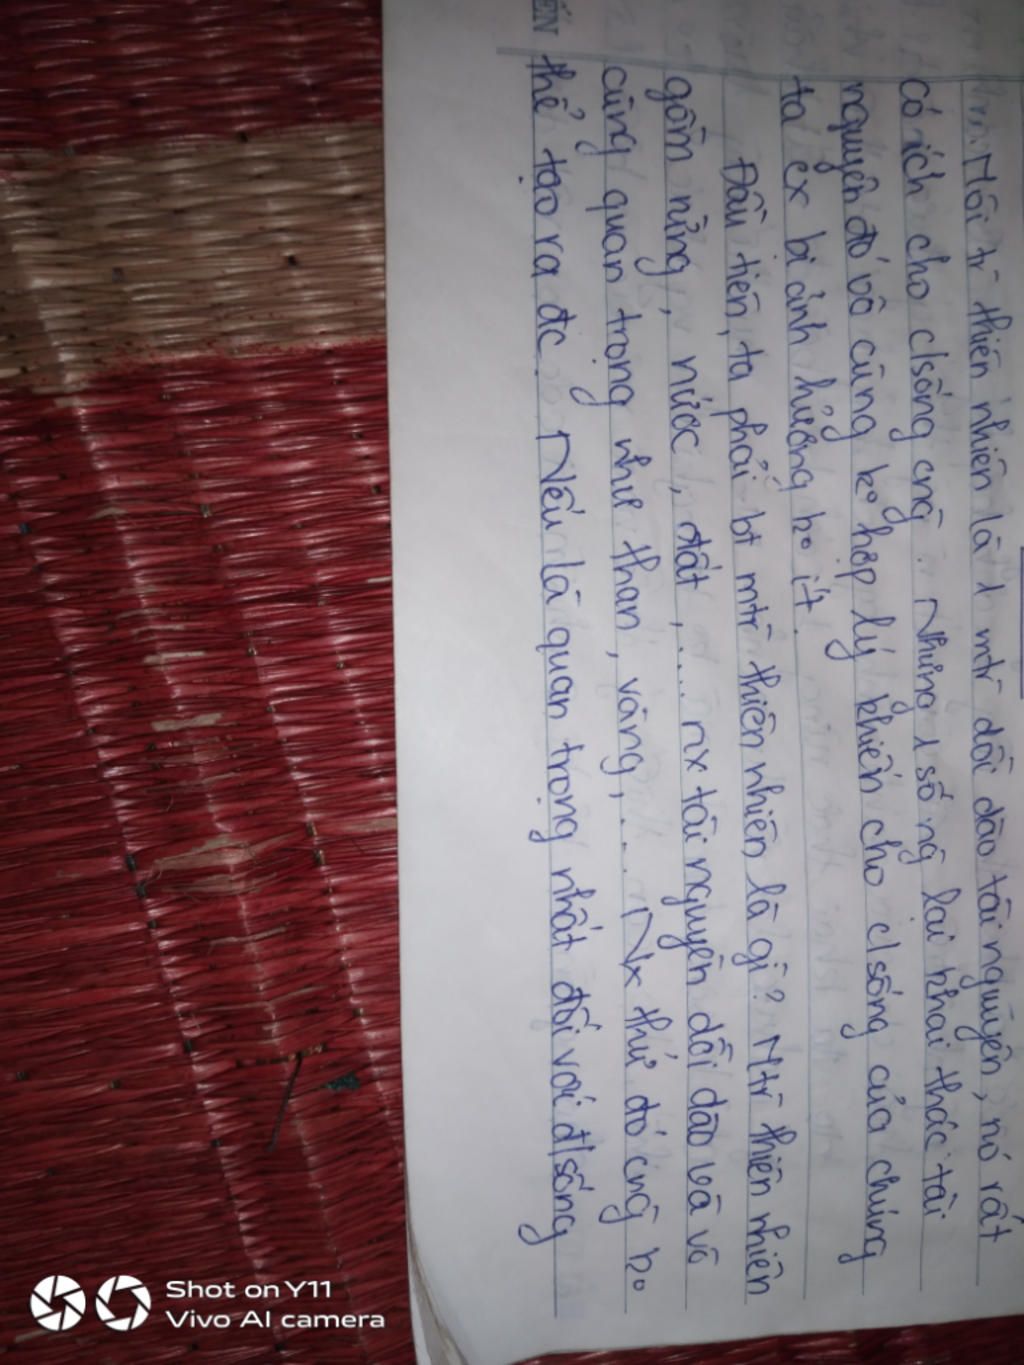 Môi tr̄ thiên nhiên là 1 mtr̄ dồi dào tài nguyên, nó rất
có ích cho c/sống cng̃. Nhưng 1 số ng̀ lại khai thác tài
nguyên đó vô cùng ko hợp lý khiến cho c/sống của chúng
ta ex bị ảnh hưởng ko ít.
Đầu tiên, ta phải bt mtr̄ thiên nhiên là gì? Mtr̄ thiên nhiên
gồm rừng, nước, đất, ... nx tài nguyên dồi dào và vô
cùng quan trọng như than, vàng, ... Nx thứ đó cng̃ ko
thể tạo ra đc. Nếu là quan trọng nhất đối với đ/sống
ẾN
Shot on Y11
Vivo AI camera